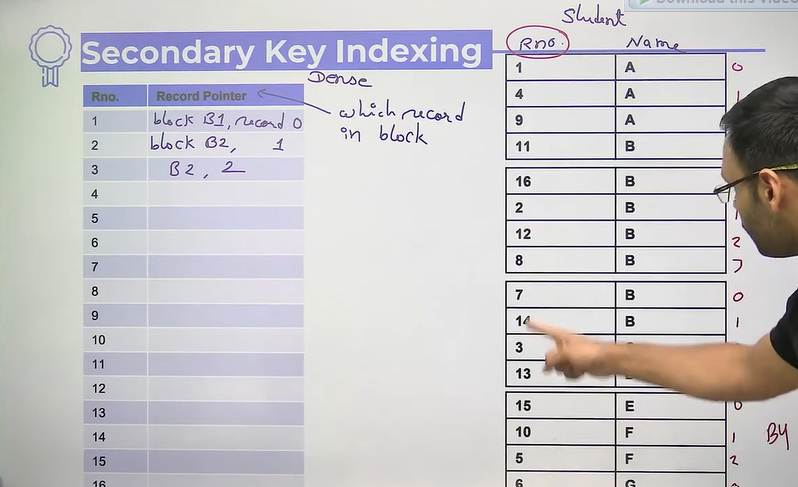 Download this video
Student
Secondary Key Indexing
Rno. Name
Dense
Rno. Record Pointer
which record
in block
1 block B1, record 0
2 block B2, 1
3 B2, 2
4
5
6
7
8
9
10
11
12
13
14
15
16
1 A 0
4 A 1
9 A
11 B
16 B
2 B 1
12 B 2
8 B
7 B 0
14 B 1
3
13
15 E 0
10 F 1 B4
5 F 2
6 G